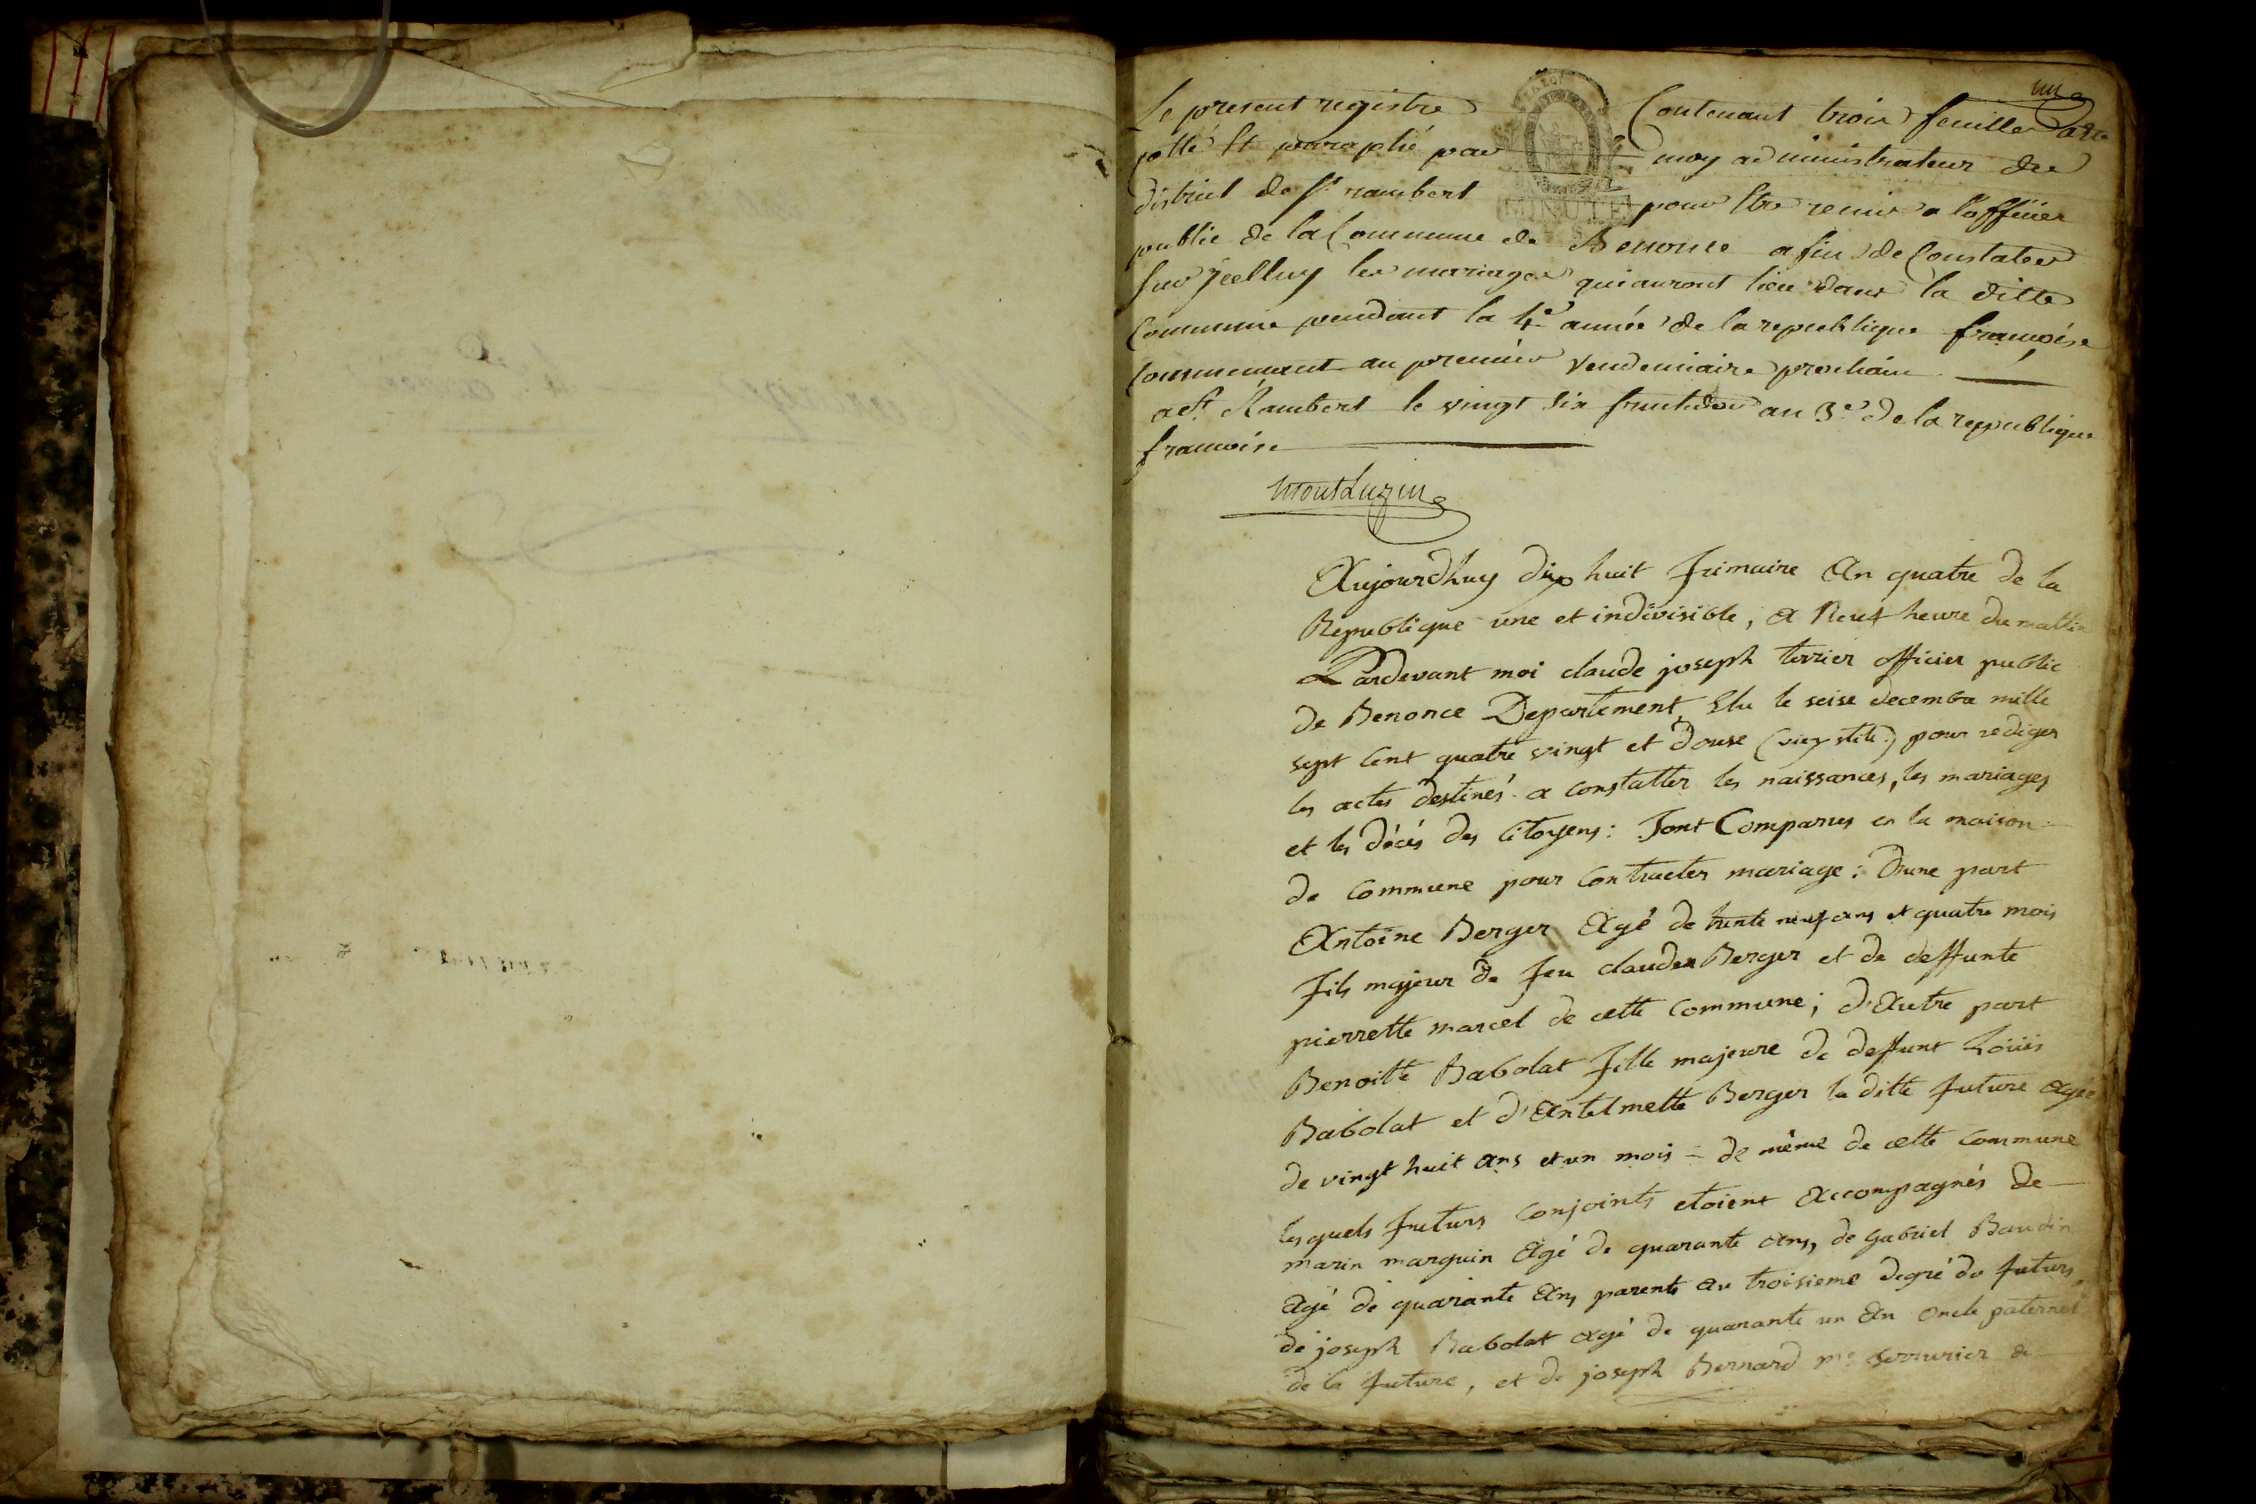 un
Le present registre Contenant trois feuilles
cotté Et paraphé par moy administrateur du
district de St rambert pour Etre remis a l'officier
MINUTE
public de la Commune de Benonce afin de Constater
sur jcelluy les mariages qui auront lieu dans la ditte
Commune pendant la 4e année de la republique françoise
Commencent au premier Vendemiaire prochain
a St Rambert le vingt six fructidor an 3e de la republique
francoise
Montluzin
Aujourdhuy dix huit frimaire An quatre de la
Republique une et indivisible, A Neuf heure du mattin
Pardevant moi claude joseph terrier officier public
de Benonce Departement, Elu le seise decembre mille
sept Cent quatre vingt et douse (viey stile) pour rediger
les actes destinés a constatter les naissances, les mariages
et les décés des Citoyens: Sont Comparus en la maison
de commune pour Contracter mariage: D'une part
Antoine Berger Agé de trente neuf ans et quatre mois
fils majeur de feu claude Berger et de deffunte
pierrette marcel de cette commune; d'Autre part
Benoitte Babolat fille majeure de deffunt Loüis
Babolat et d'Antelmette Berger la ditte future Agée
de vingt huit Ans et un mois - de même de cette commune
les quels futurs Conjoints etoient Accompagnés de
marin marguin Agé de quarante Ans, de Gabriel Baudin
Agé de quarante Ans parents Au troisieme degré du futurs
de joseph Babolat agé de quarante un An oncle paternel
de la future, et de joseph Bernard me serrurier de